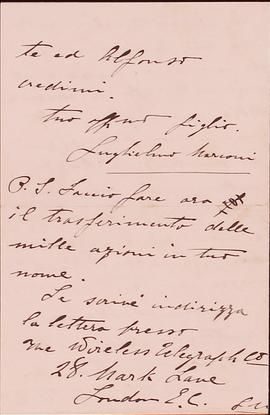 te ed Alfonso
credimi.
tuo aff.mo figlio.
Guglielmo Marconi
P.S. Faccio fare ora
il trasferimento delle
mille azioni in tuo
nome.
Se scrivi indirizza
la lettera presso
The Wireless Telegraph Co
28. Mark Lane
London E.C.